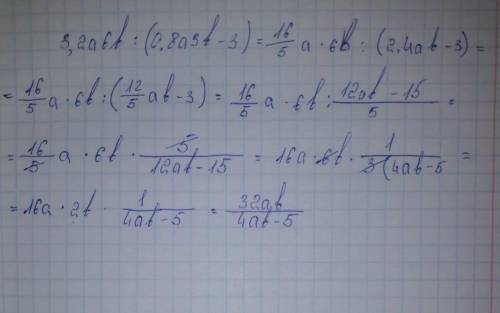 3,2a6b : (0,8a3b - 3) = 16/5 a · 6b : (2,4ab - 3) =
= 16/5 a · 6b : (12/5 ab - 3) = 16/5 a · 6b : (12ab - 15)/5 =
= 16/5 a · 6b · 5/(12ab - 15) = 16a · 6b · 1/(3(4ab - 5) =
= 16a · 2b · 1/(4ab - 5) = 32ab/(4ab - 5)